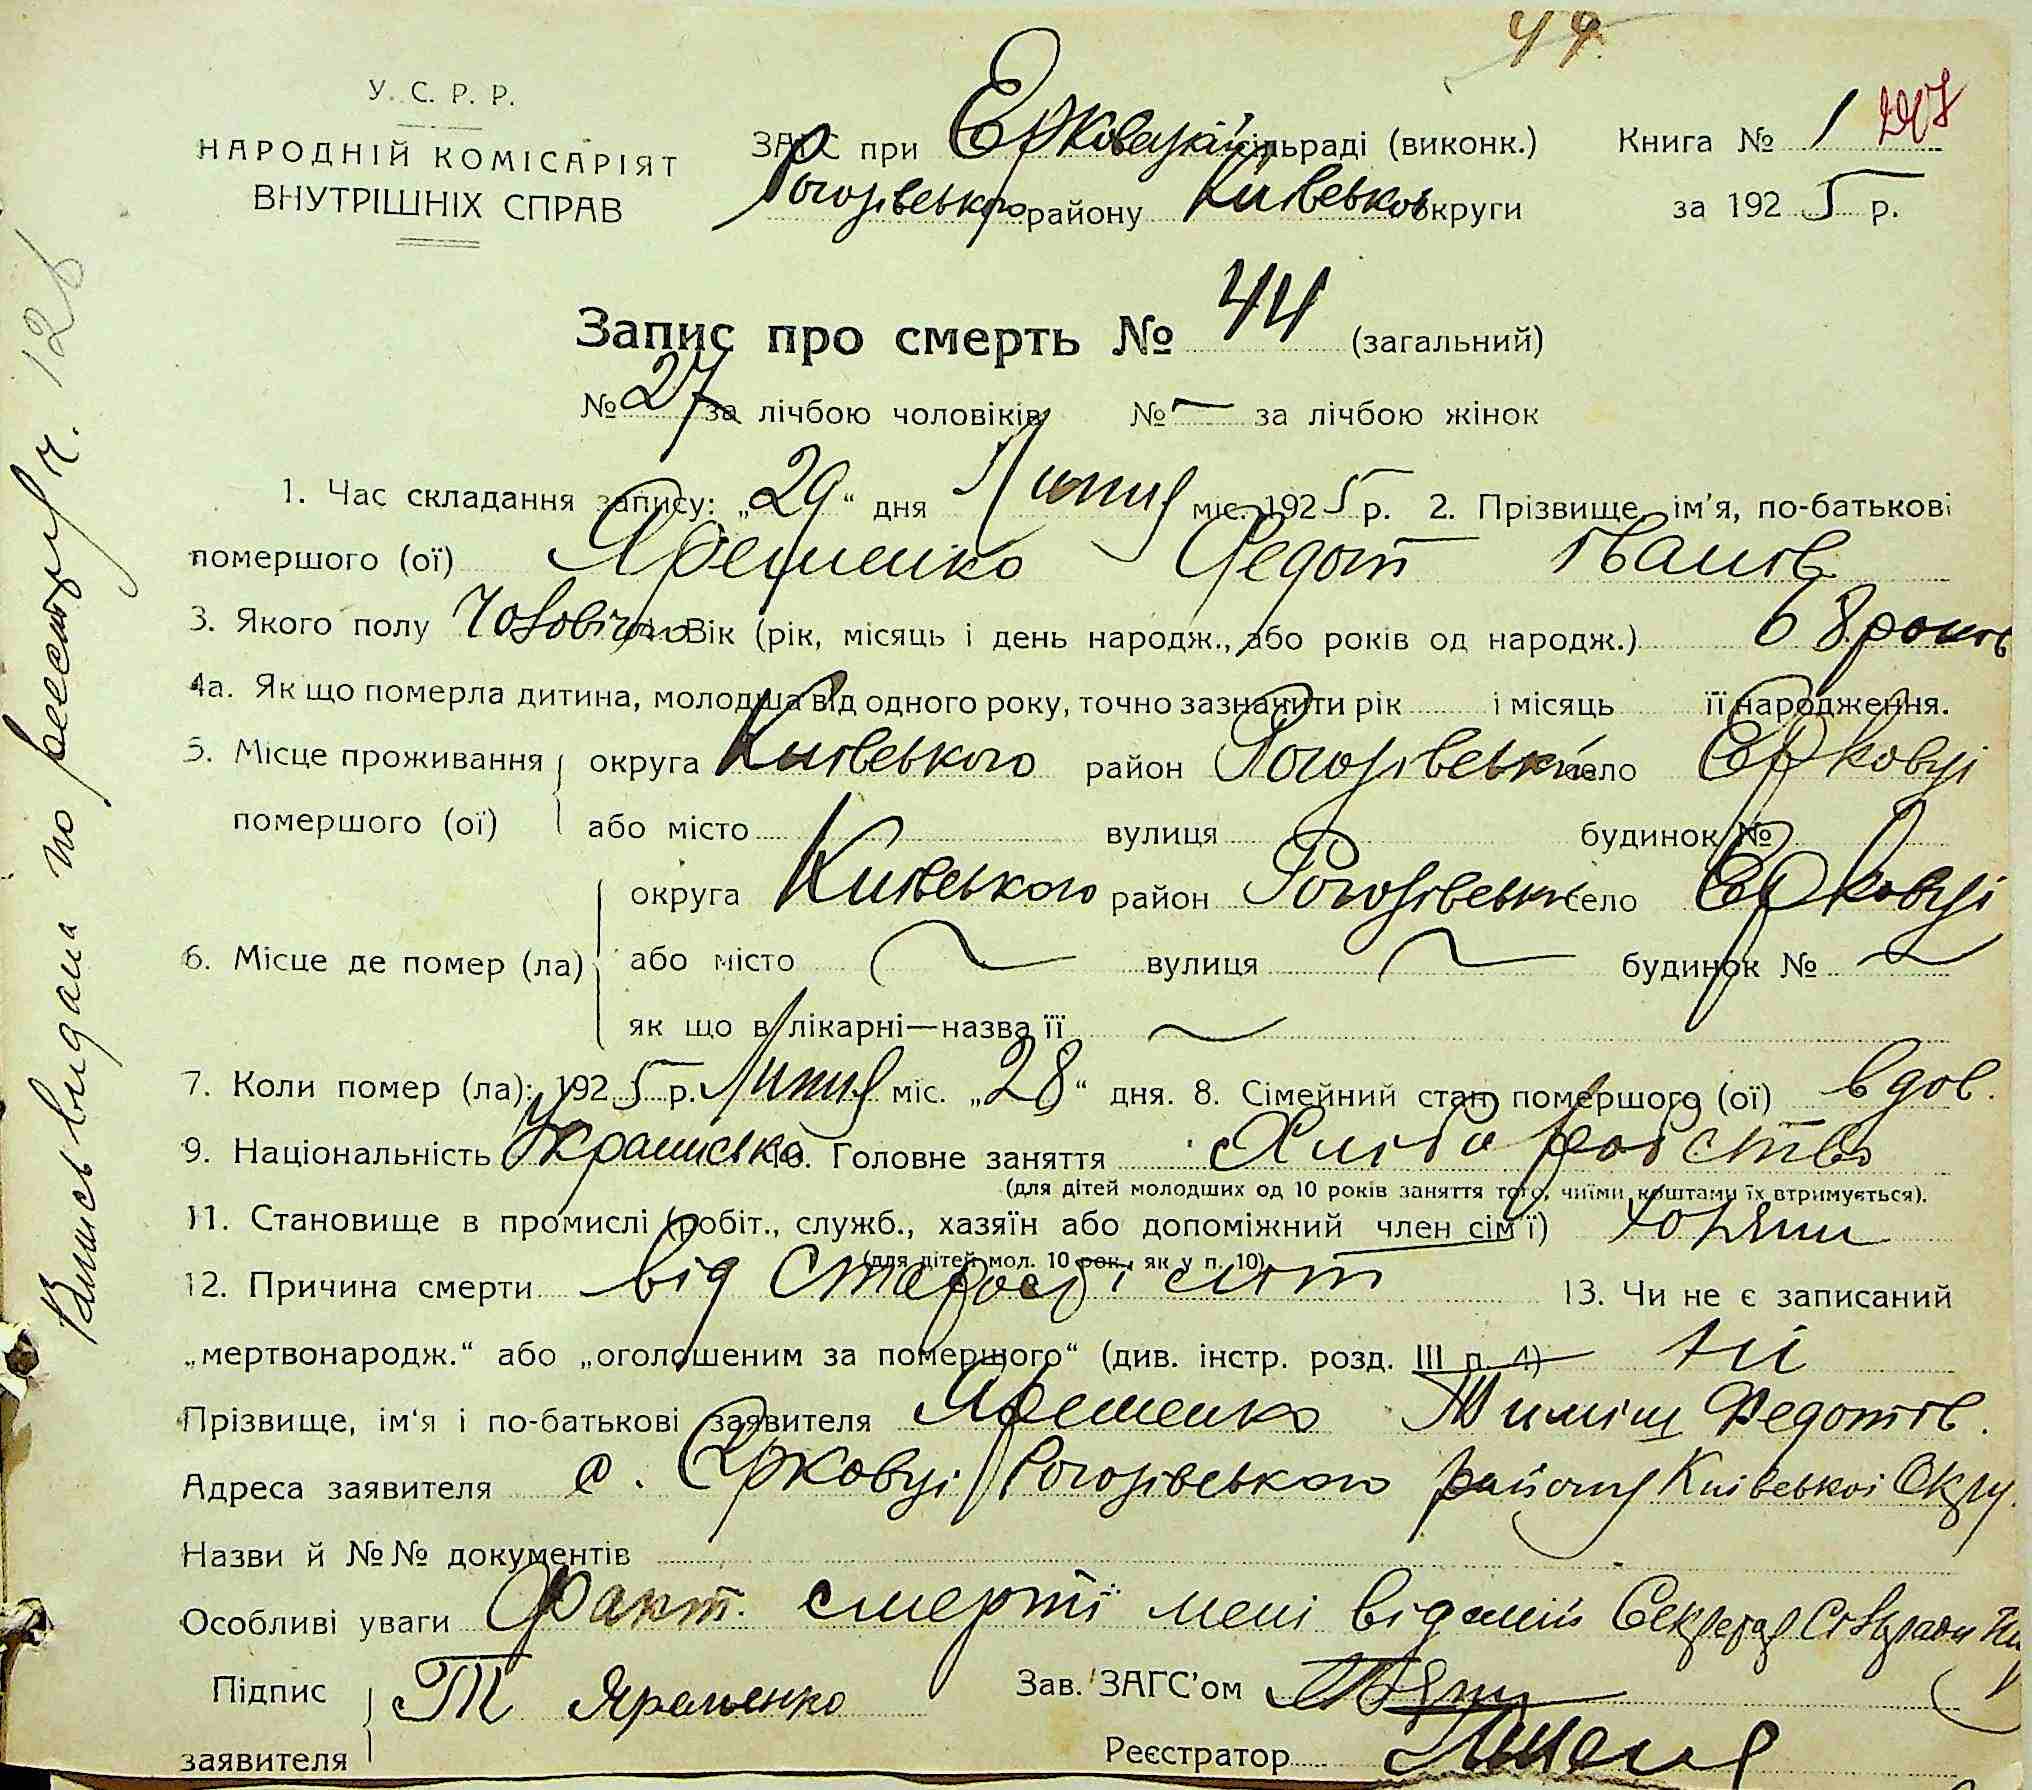 44
У. С. Р. Р.
НАРОДНІЙ КОМІСАРІЯТ
ВНУТРІШНІХ СПРАВ
ЗАГС при Ерковецкій сільраді (виконк.)
Рогозівського району Київської округи
Книга № 1
за 1925 р.
Запис про смерть № 44 (загальний)
№ 27 за лічбою чоловіків № — за лічбою жінок
1. Час складання запису: „29“ дня Липня міс. 1925 р. 2. Прізвище, ім'я, по-батькові
помершого (ої) Яременко Федот Іванів
3. Якого полу Чоловічого Вік (рік, місяць і день народж., або років од народж.) 68 років
4а. Як що померла дитина, молодша від одного року, точно зазначити рік і місяць її народження.
5. Місце проживання округа Київського район Рогозівський село Єрковці
помершого (ої) або місто вулиця будинок №
округа Київського район Рогозівський село Єрковці
6. Місце де помер (ла) або місто — вулиця — будинок № —
як що в лікарні—назва її —
7. Коли помер (ла): 1925 р. Липня міс. „28“ дня. 8. Сімейний стан помершого (ої) вдов.
9. Національність Українська 10. Головне заняття Хліборобство
(для дітей молодших од 10 років заняття того, чиїми коштами їх втримується).
11. Становище в промислі (робіт., служб., хазяїн або допоміжний член сім'ї) хозяин
(для дітей мол. 10 рок., як у п. 10)
12. Причина смерти від старості літ 13. Чи не є записаний
„мертвонародж.“ або „оголошеним за померщого“ (див. інстр. розд. III п. 4) ні
Прізвище, ім'я і по-батькові заявителя Яременко Тиміш Федотів.
Адреса заявителя с. Єрковці Рогозівського району Київської Окру.
Назви й №№ документів
Особливі уваги Факт. смерті мені відомій Секретар Сільради
Підпис
заявителя Т Яременко
Зав. ЗАГС'ом
Реєстратор
Випись видана по реестру ч. 126